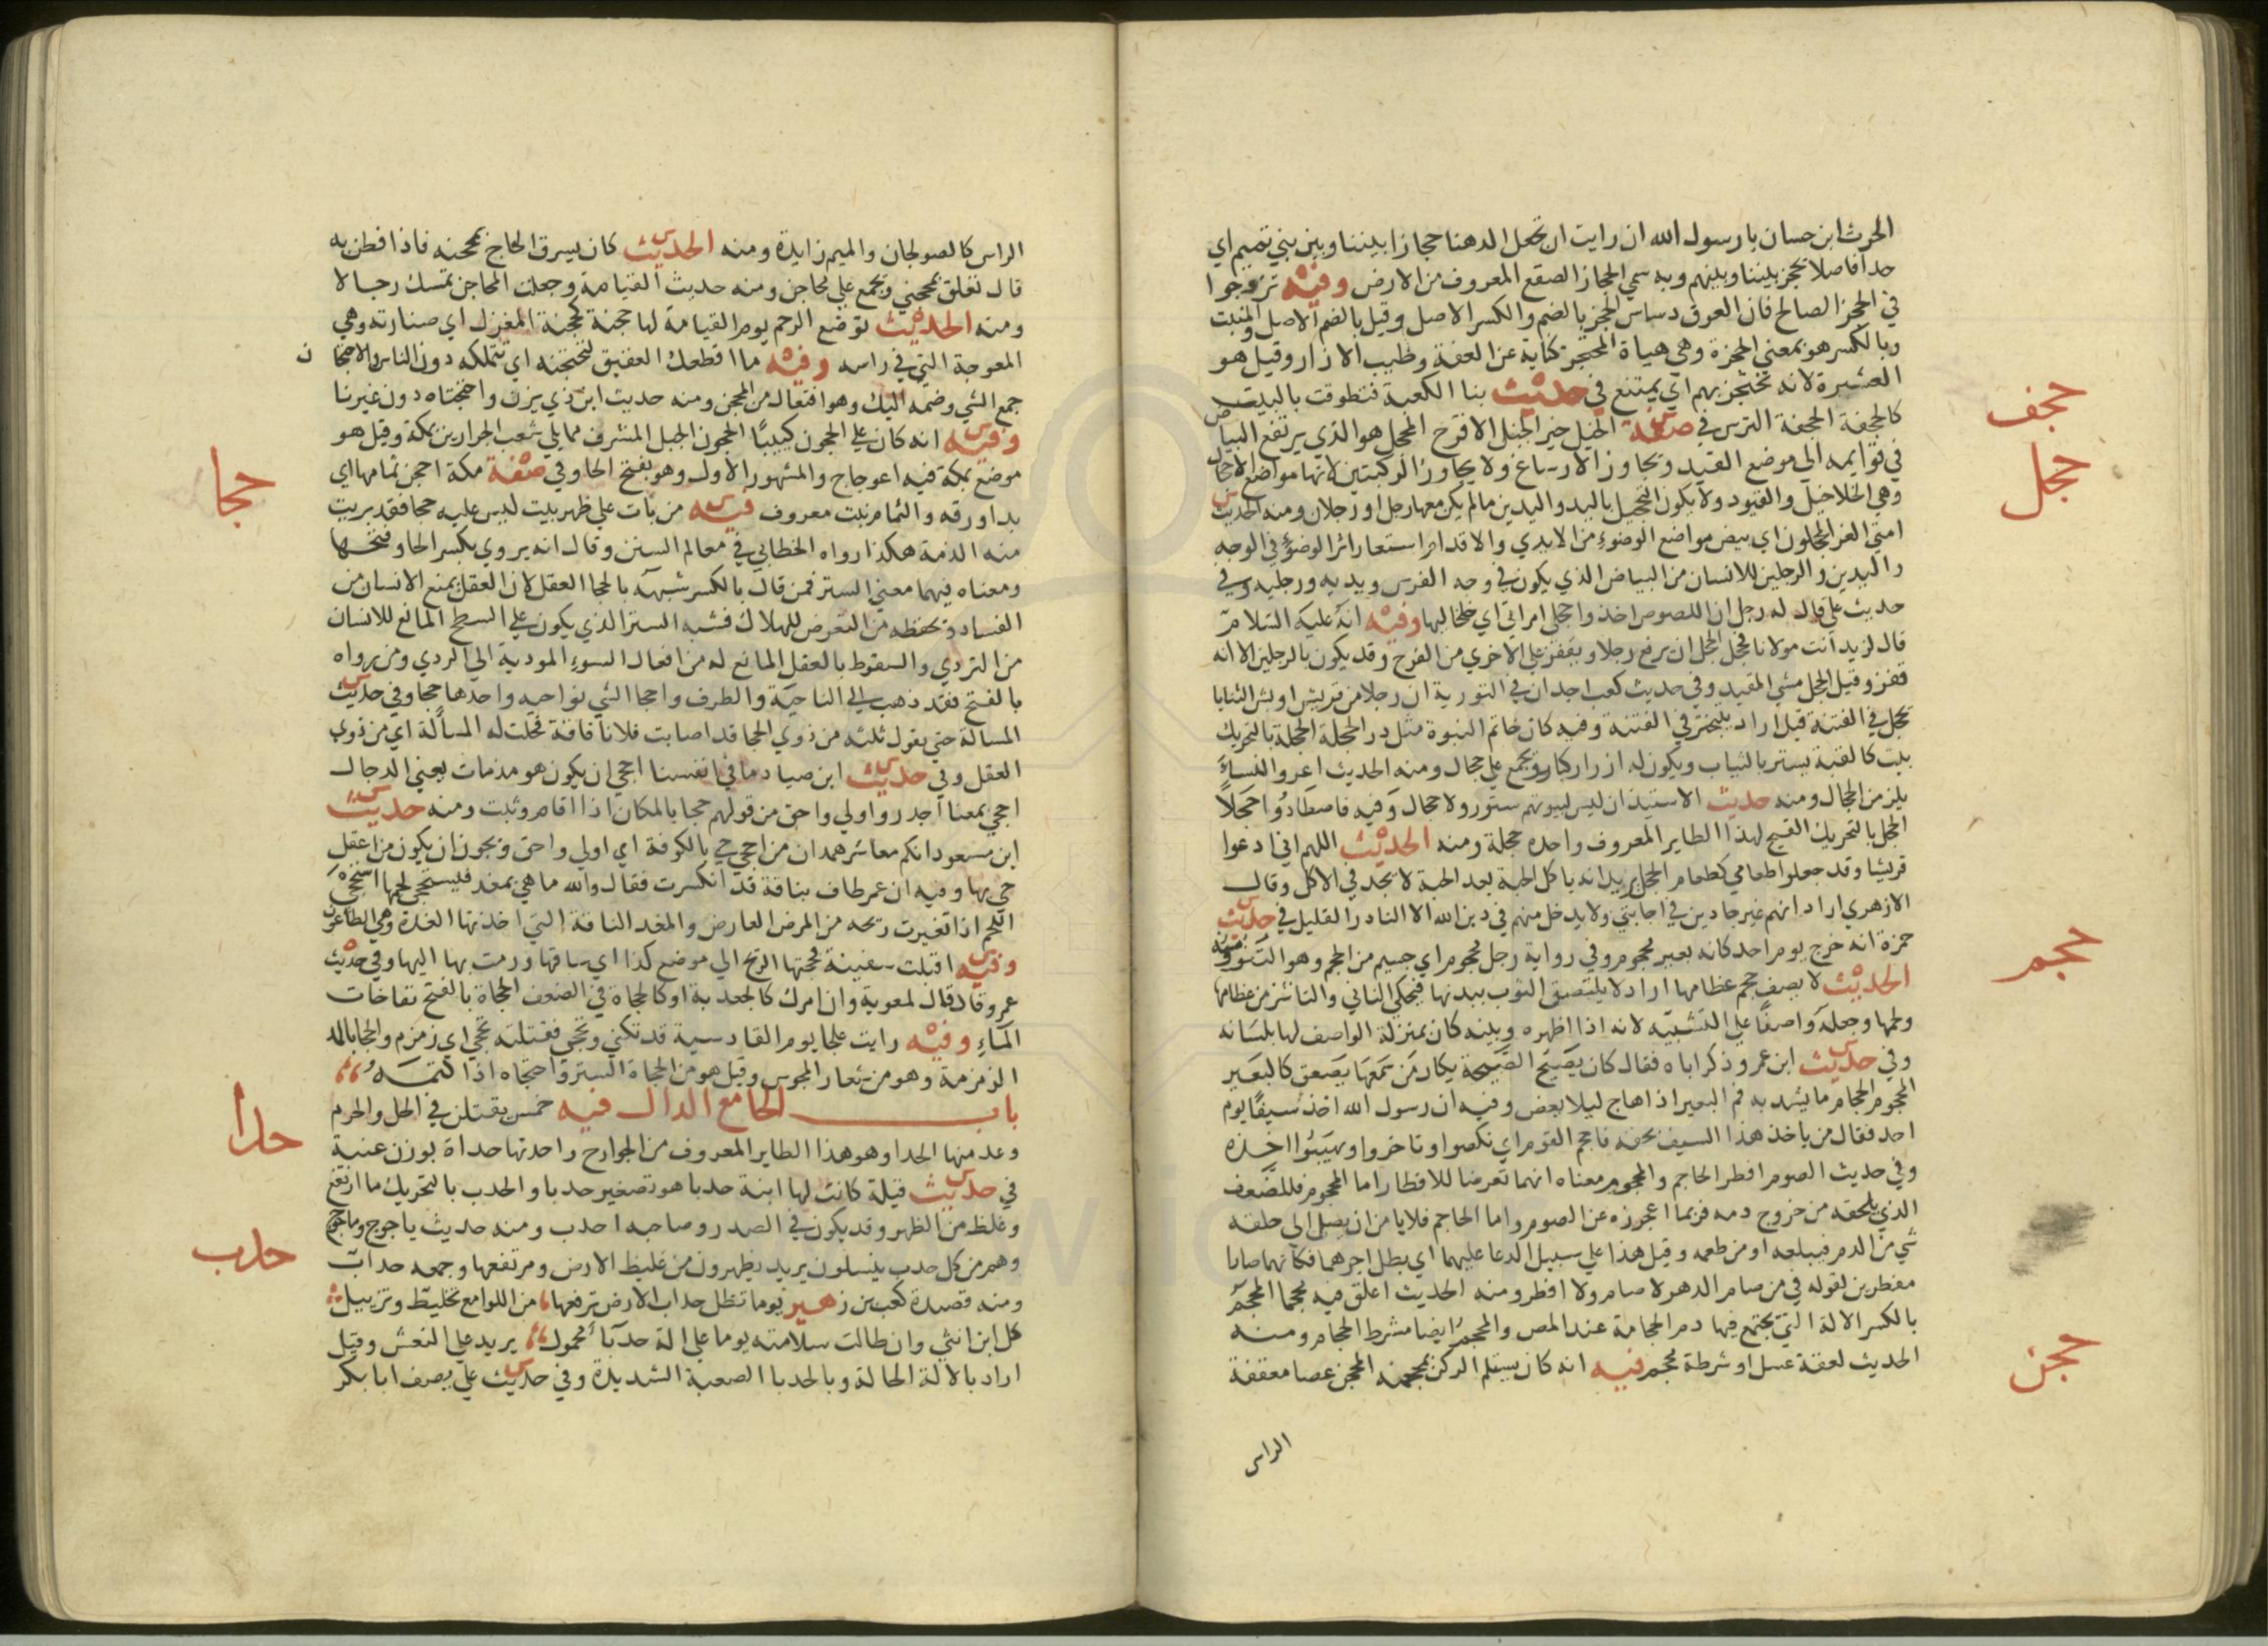 الحرث ابن حسان يا رسول الله ان رايت ان تجعل الدهنا حجازا بيننا وبين بني تميم اي
حدا فاصلا يحجز بيننا وبينهم وبه سمي الحجاز الصقع المعروف من الارض وفيه تزوجوا
في الحجز الصالح فان العرق دساس الحجز بالضم والكسر الاصل وقيل بالضم الاصل والمنبت
وبالكسر هو بمعني الحجزة وهي هياة المحتجز كناية عن العفة وطيب الازار وقيل هو
العشيرة لانه يحتجز بهم اي يمتنع في حديث بنا الكعبة فتطوقت بالبيت
حجف
كالحجفة الحجفة الترس في صفة الخيل خير الخيل الاقرح المحجل هو الذي يرتفع البياض
حجل
في قوايمه الي موضع القيد ويجاوز الارساغ ولا يجاوز الركبتين لانها مواضع الاحجال
وهي الخلاخيل والقيود ولا يكون التحجيل باليد واليدين مالم يكن معها رجل اورجلان ومنه الحديث
امتي الغر المحجلون اي بيض مواضع الوضوء من الايدي والاقدام استعار اثر الوضوء في الوجه
واليدين والرجلين للانسان من البياض الذي يكون في وجه الفرس ويديه ورجليه وفي
حديث علي قال له رجل ان اللصوص اخذوا حجلي امراتي اي خلخاليها وفيه انه عليه السلام
قال لزيد انت مولانا فحجل الحجل ان يرفع رجلا ويقفز علي الاخري من الفرح وقد يكون بالرجلين الا انه
قفز وقيل الحجل مشي المقيد وفي حديث كعب اجد ان في التورية ان رجلا من قريش اوبش الثنايا
يحجل في الفتنة قيل اراد يتبختر في الفتنة وفيه كان خاتم النبوة مثل زر الحجلة الحجلة بالتحريك
بيت كالقبة يستر بالثياب ويكون له ازرار كبار ويجمع علي حجال ومنه الحديث اعروا النساء
يلزمن الحجال ومنه حديث الاستيذان ليس لبيوتهم ستور ولا حجال وفيه فاصطادوا حجلا
الحجل بالتحريك القبج لهذا الطاير المعروف واحده حجلة ومنه الحديث اللهم اني ادعوا
قريشا وقد جعلوا طعامي كطعام الحجل يريد انه ياكل الحبة بعد الحبة لا يجد في الاكل وقال
الازهري اراد انهم غير جادين في اجابتي ولا يدخل منهم في دين الله الا النادر القليل في حديث
حجم
حمزة انه خرج يوم احد كانه بعير محجوم وفي رواية رجل محجوم اي جسيم من الحجم وهو النتو ومنه
الحديث لا يصف حجم عظامها اراد لا يلتصق الثوب ببدنها فيحكي الناتي والناشز من عظامها
ولحمها وجعله واصفا علي التشبيه لانه اذا اظهره وبينه كان بمنزلة الواصف لها بلسانه
وفي حديث ابن عمر وذكر اباه فقال كان يصيح الصيحة يكاد من سمعها يصعق كالبعير
المحجوم الحجام ما يشد به فم البعير اذا هاج ليلا يعض وفيه ان رسول الله اخذ سيفا يوم
احد فقال من ياخذ هذا السيف بحقه فاحجم القوم اي نكصوا وتاخروا وتهيبوا اخذه
وفي حديث الصوم افطر الحاجم والمحجوم معناه انهما تعرضا للافطار اما المحجوم فللضعف
الذي يلحقه من خروج دمه فربما اعجزه عن الصوم واما الحاجم فلا يامن ان يصل الي حلقه
شي من الدم فيبلعه او من طعمه وقيل هذا علي سبيل الدعا عليهما اي بطل اجرهما فكانهما صارا
مفطرين لقوله في من صام الدهر لا صام ولا افطر ومنه الحديث اعلق فيه محجما المحجم
بالكسر الالة التي يجتمع فيها دم الحجامة عند المص والمحجم ايضا مشرط الحجام ومنه
حجن
الحديث لعقة عسل او شرطة محجم فيه انه كان يستلم الركن بمحجنه المحجن عصا معقفة
الراس
الراس كالصولجان والميم زايدة ومنه الحديث كان يسرق الحاج بمحجنه فاذا فطن به
قال تعلق بمحجني ويجمع علي محاجن ومنه حديث القيامة وجعلت المحاجن تمسك رجالا
ومنه الحديث توضع الرحم يوم القيامة لها حجنة كحجنة المغزل اي صنارته وهي
المعوجة التي في راسه وفيه ما اقطعك العقيق لتحتجنه اي تتملكه دون الناس والاحتجان
جمع الشي وضمه اليك وهو افتعال من المحجن ومنه حديث ابن ذي يزن واحتجناه دون غيرنا
وفيه انه كان علي الحجون كييبا الحجون الجبل المشرف مما يلي شعب الجرارين بمكة وقيل هو
موضع بمكة فيه اعوجاج والمشهور الاول وهو بفتح الحا وفي صفة مكة احجن ثمامها اي
حجا
بدا ورقه والثمام نبت معروف فيه من بات علي ظهر بيت ليس عليه حجا فقد بريت
منه الذمة هكذا رواه الخطابي في معالم السنن وقال انه يروي بكسر الحا وفتحها
ومعناه فيهما معني الستر فمن قال بالكسر شبهه بالحجا العقل لان العقل يمنع الانسان من
الفساد ويحفظه من التعرض للهلاك فشبه الستر الذي يكون علي السطح المانع للانسان
من التردي والسقوط بالعقل المانع له من افعال السوء المودية الي الردي ومن رواه
بالفتح فقد ذهب الي الناحية والطرف واحجا الشي نواحيه واحدها حجا وفي حديث
المسالة حتي يقول ثلثه من ذوي الحجا قد اصابت فلانا فاقة فحلت له المسألة اي من ذوي
العقل وفي حديث ابن صياد ما في انفسنا احجي ان يكون هو مذ مات يعني الدجال
احجي بمعنا اجدر واولي واحق من قولهم حجا بالمكان اذا اقام وثبت ومنه حديث
ابن مسعود انكم معاشر همدان من احجي حي بالكوفة اي اولي واحق ويجوز ان يكون من اعقل
حي بها وفيه ان عمر طاف بناقة قد انكسرت فقال والله ما هي بمغد فيستحجي لحمها استحجي
اللحم اذا تغيرت ريحه من المرض العارض والمغد الناقة التي اخذتها الغدة وهي الطاعون
وفيه اقبلت سفينة فحجتها الريح الي موضع كذا اي ساقها ورمت بها اليها وفي حديث
عمرو قال قال لمعوية وان امرك كالجعدبة او كالحجاة في الضعف الحجاة بالفتح نفاخات
الماء وفيه رايت علجا يوم القادسية قد تكني وتحجي فقتلته تحجي اي زمزم والحجا بالمد
الزمزمة وهو من شعار المجوس وقيل هو من الحجاة الستر واحتجاه اذا كتمه
باب الحا مع الدال فيه خمس يقتلن في الحل والحرم
حدا
وعد منها الحدا وهو هذا الطاير المعروف من الجوارح واحدتها حداة بوزن عنبة
في حديث قيلة كانت لها ابنة حدبا هو تصغير حدبا والحدب بالتحريك ما ارتفع
وغلظ من الظهر وقد يكون في الصدر وصاحبه احدب ومنه حديث ياجوج وماجوج
حدب
وهم من كل حدب ينسلون يريد يظهرون من غليظ الارض ومرتفعها وجمعه حداب
ومنه قصيدة كعب بن زهير يوما تظل حداب الارض ترفعها من اللوامع تخليط وتزييل
كل ابن انثي وان طالت سلامته يوما علي الة حدبا محمول يريد علي النعش وقيل
اراد بالالة الحالة وبالحدبا الصعبة الشديدة وفي حديث علي يصف ابا بكر